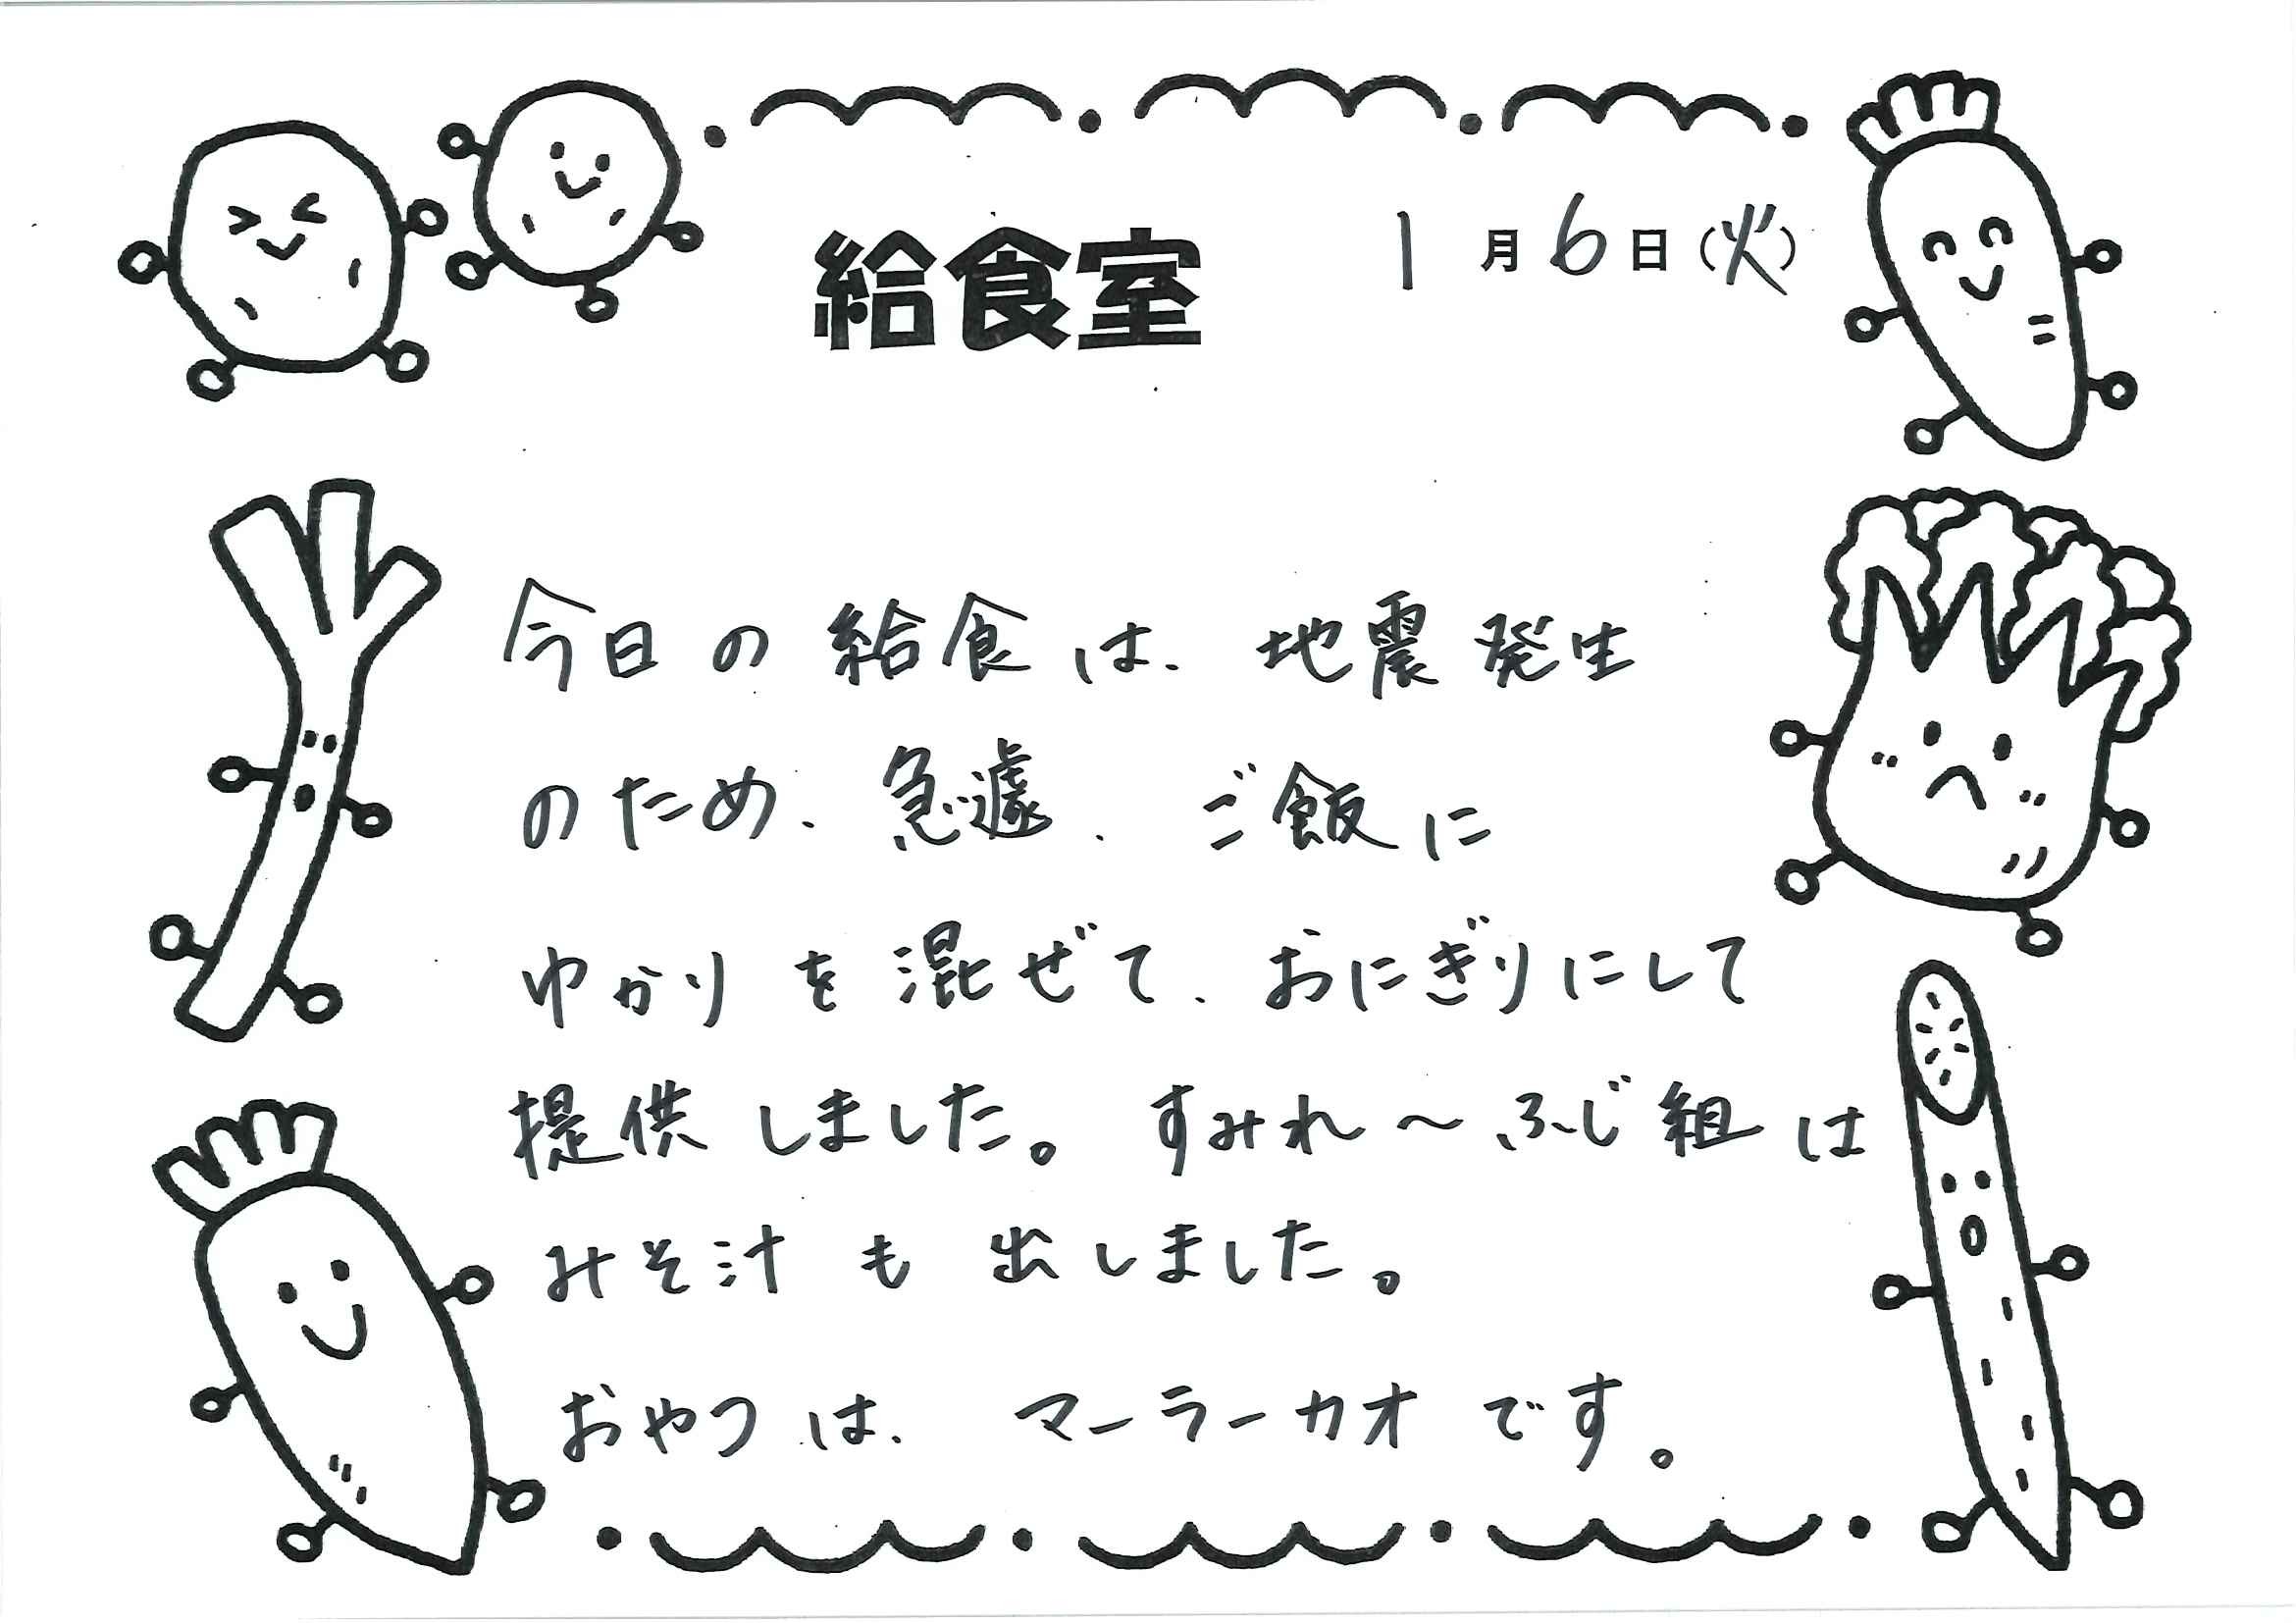 給食室
1月6日(火)
今日の給食は、地震発生
のため、急遽、ご飯に
ゆかりを混ぜて、おにぎりにして
提供しました。すみれ～ふじ組は
みそ汁も出しました。
おやつは、マーラーカオです。